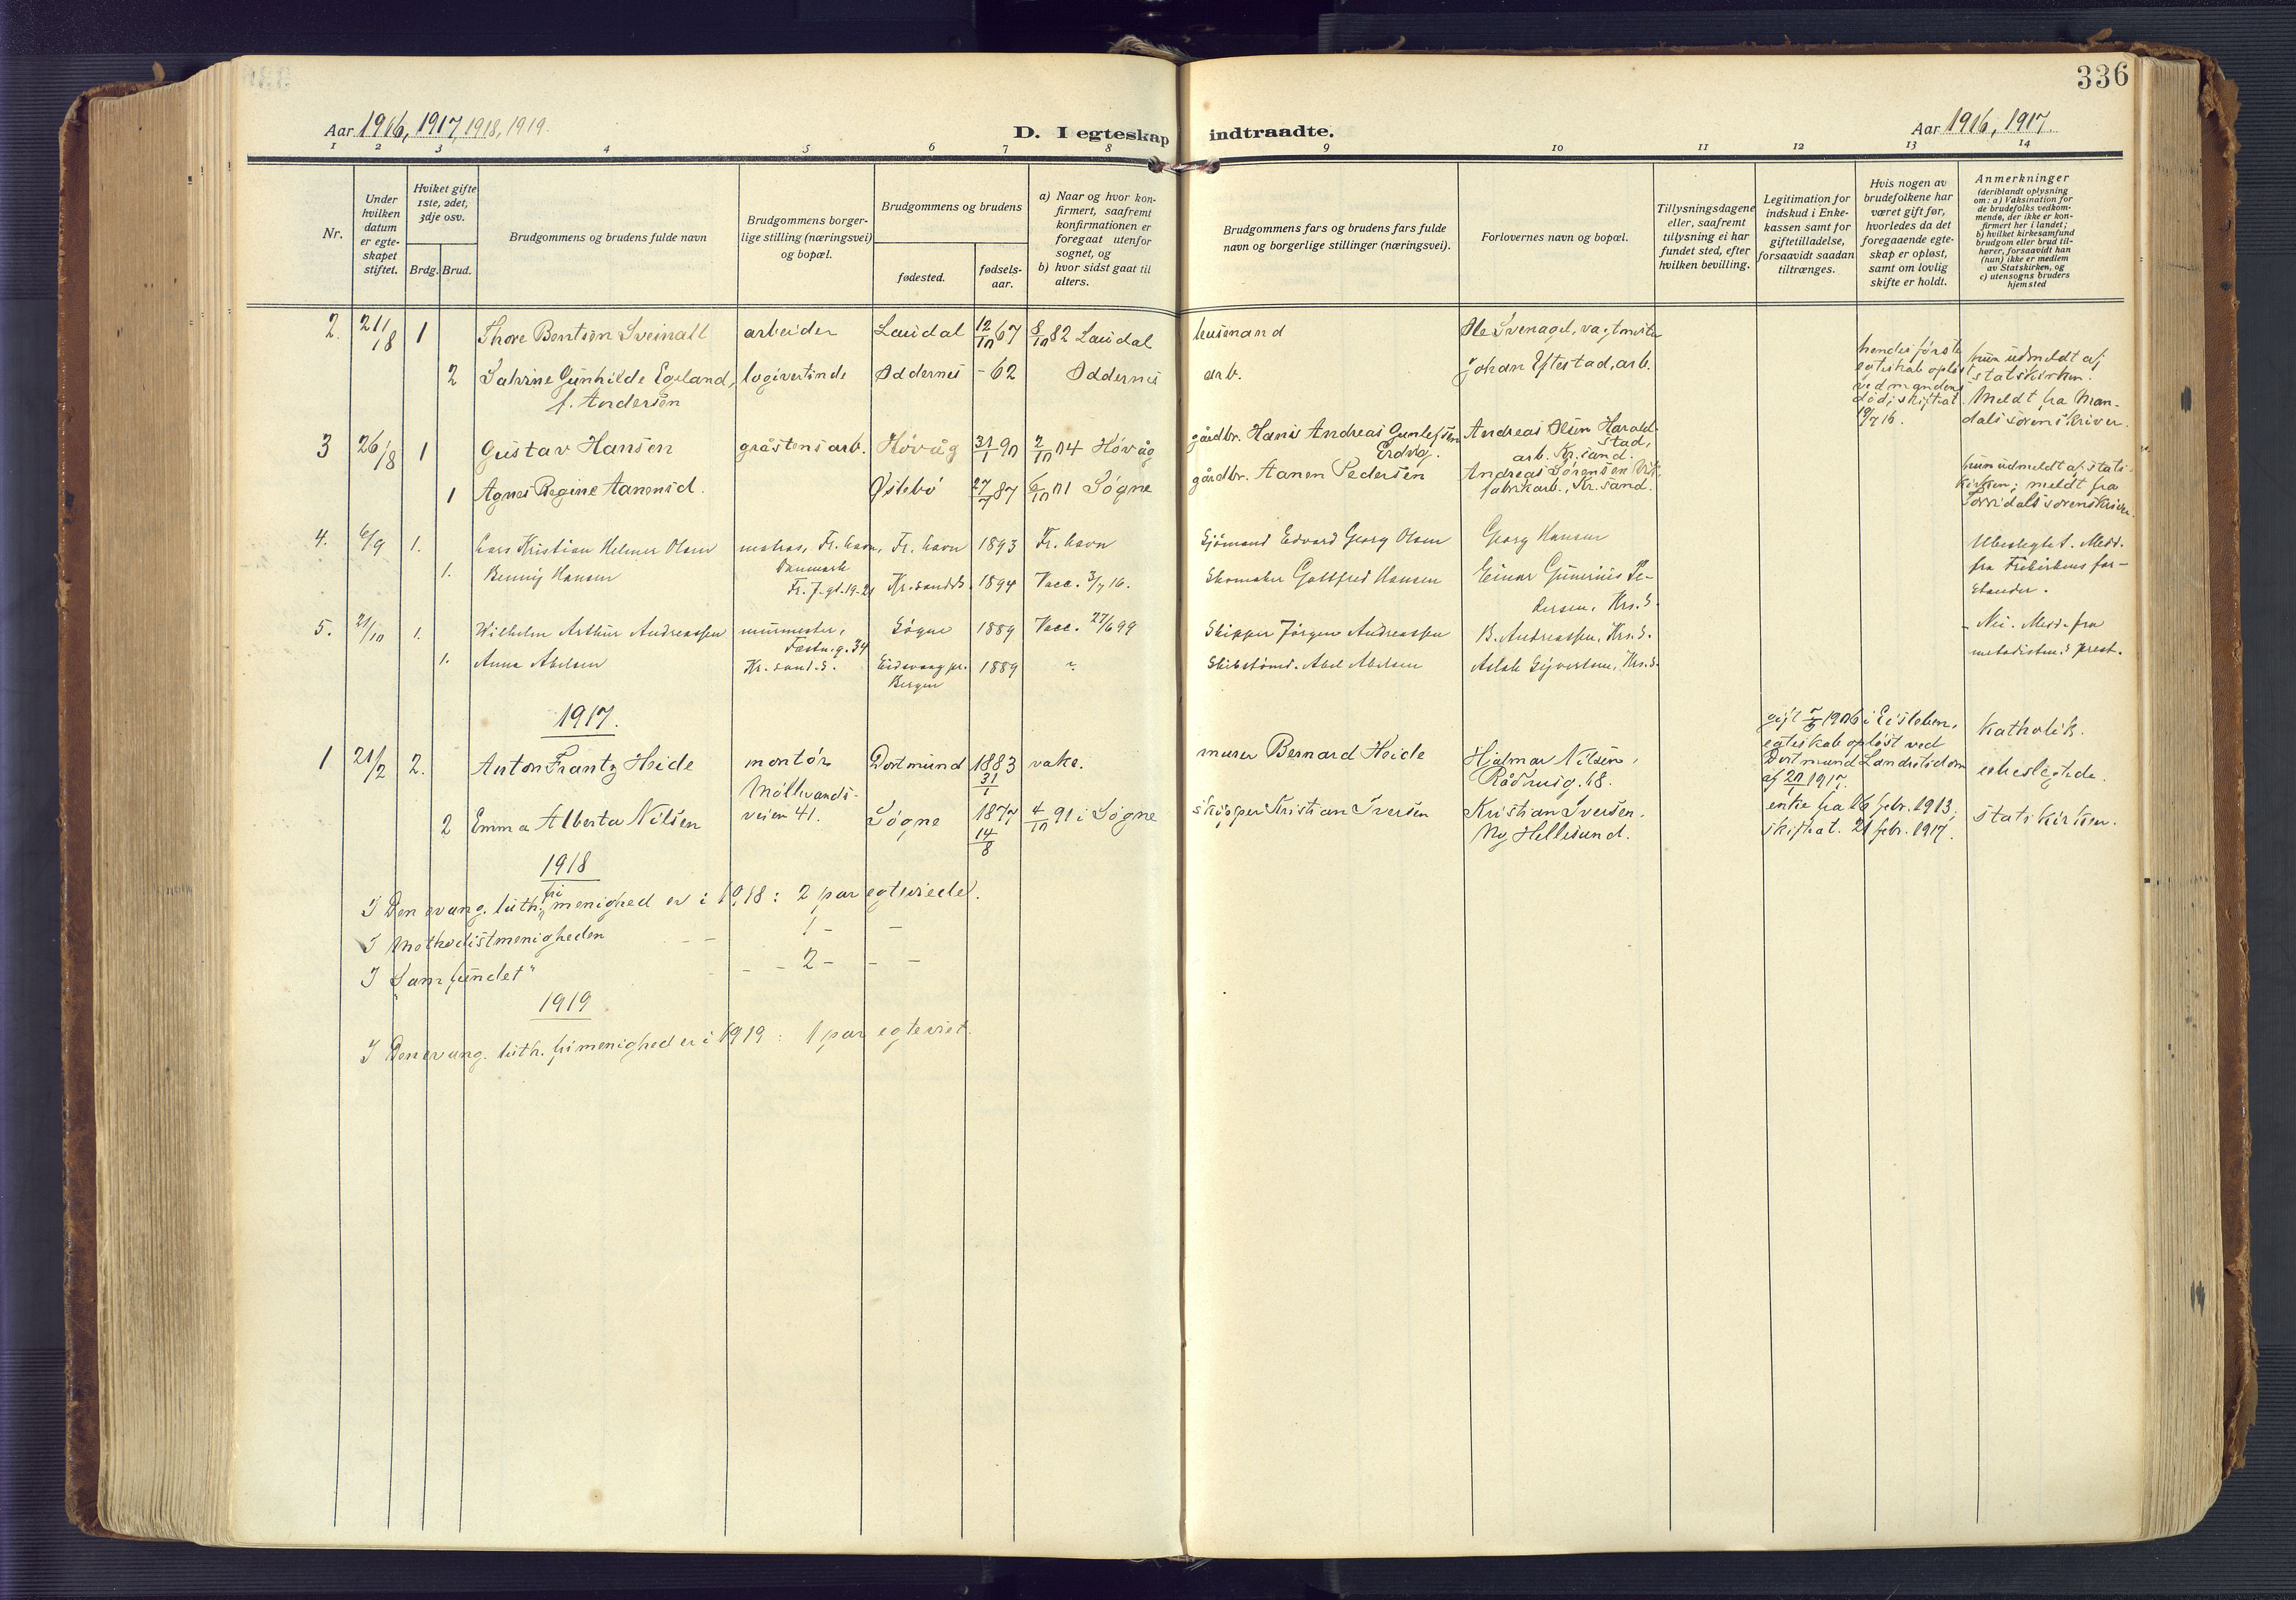 336
Aar 1916, 1917, 1918, 1919.
D. I egteskap indtraadte.
Aar 1916, 1917.
1 2 3 4 5 6 7 8 9 10 11 12 13 14
Nr.
Under hvilken datum er egteskapet stiftet.
Hviket gifte 1ste, 2det, 3dje osv.
Brdg. Brud.
Brudgommens og brudens fulde navn
Brudgommens borgerlige stilling (næringsvei) og bopæl.
Brudgommens og brudens
fødested.
fødselsaar.
a) Naar og hvor konfirmert, saafremt konfirmationen er foregaat utenfor sognet, og
b) hvor sidst gaat til alters.
Brudgommens fars og brudens fars fulde navn og borgerlige stillinger (næringsvei).
Forlovernes navn og bopæl.
Tillysningsdagene eller, saafremt tillysning ei har fundet sted, efter hvilken bevilling.
Legitimation for indskud i Enkekassen samt for giftetilladelse, forsaavidt saadan tiltrænges.
Hvis nogen av brudefolkene har været gift før, hvorledes da det foregaaende egteskap er opløst, samt om lovlig skifte er holdt.
Anmerkninger
(deriblandt oplysning om: a) Vaksination for de brudefolks vedkommende, der ikke er konfirmert her i landet; b) hvilket kirkesamfund brudgom eller brud tilhører, forsaavidt han (hun) ikke er medlem av Statskirken, og c) utensogns bruders hjemsted
2. 21/8 1 Thore Bentsen Sveinall arbeider Laudal 12/10 67 8/10 82 Laudal husmand Ole Svenagel,
2 Salvine Gunhilde Egeland, logivertinde Oddernes -62 Oddernes arb. Johan Eftestad, arb. hendes første egteskab opløst ved mandens død; skiftet 19/7 16. hun udmeldt af statskirken. Meldt fra Mandals sorenskriver.
f. Andersen
3 26/8 1 Gustav Hansen gråstensarb. Høvåg 31/1 90 2/10 04 Høvåg gårdbr. Hans Andreas Gunlefsen Andreas Olsen Haraldstad, arb. Kr.sand.
1 Agnes Regine Aanensd. Østebø 27/7 87 6/10 01 Søgne gårdbr. Aanen Pedersen Andreas Sørensen fabrikarb., Kr.sand. hun udmeldt af statskirken; meldt fra Torridals sorenskriver.
4. 6/9 1. Lars Kristian Helmer Olsen matros, Fr. havn, Fr. havn 1893 Fr. havn Sjømand Edvard Georg Olsen Georg Hansen Ubeslegtet. Medd. fra Frikirkens forstander.
Danmark
1. Benny Hansen Kr.sand S. 1894 Vacc. 3/7 16. Skomaker Gottfred Hansen Einar Gunerius Pedersen, Krs. S.
5. 21/10 1. Wilhelm Arthur Andreassen murmester, Søgne 1889 Vacc. 27/6 99 Skipper Jørgen Andreassen B. Andreassen, Krs. S. Nei. Medd. fra metodistens prest.
Fæstn.g. 34
1. Anna Abelsen Kr. sand. S. Eidsvaag pr. Bergen 1889 Abel Abelsen Aslak Syvertsen, Krs. S.
1917.
1 21/2 2. Anton Frantz Heide montør Dortmund 1883 31/1 vake. murer Bernard Heide Hjalmar Nilsen, Rådhusg. 18. gift 1906 i Eisleben, egteskab opløst ved Dortmund Landretsdom af 1917. Katholik. ubeslegtede.
Møllevandsveien 41.
2 Emma Alberta Nilsen Søgne 1877 14/8 4/10 91 i Søgne skipper Kristian Iversen Kristian Iversen, Ny Hellesund. enke fra 16 febr. 1913; skiftet. 21 febr. 1917. statskirken.
1918
I Den evang. luth. frimenighed er i 1918: 2 par egteviede.
I Methodistmenigheden - - 1 - -
I "Samfundet" - - 2 - - -
1919
I Den evang. luth. frimenighed er i 1919: 1 par egteviet.